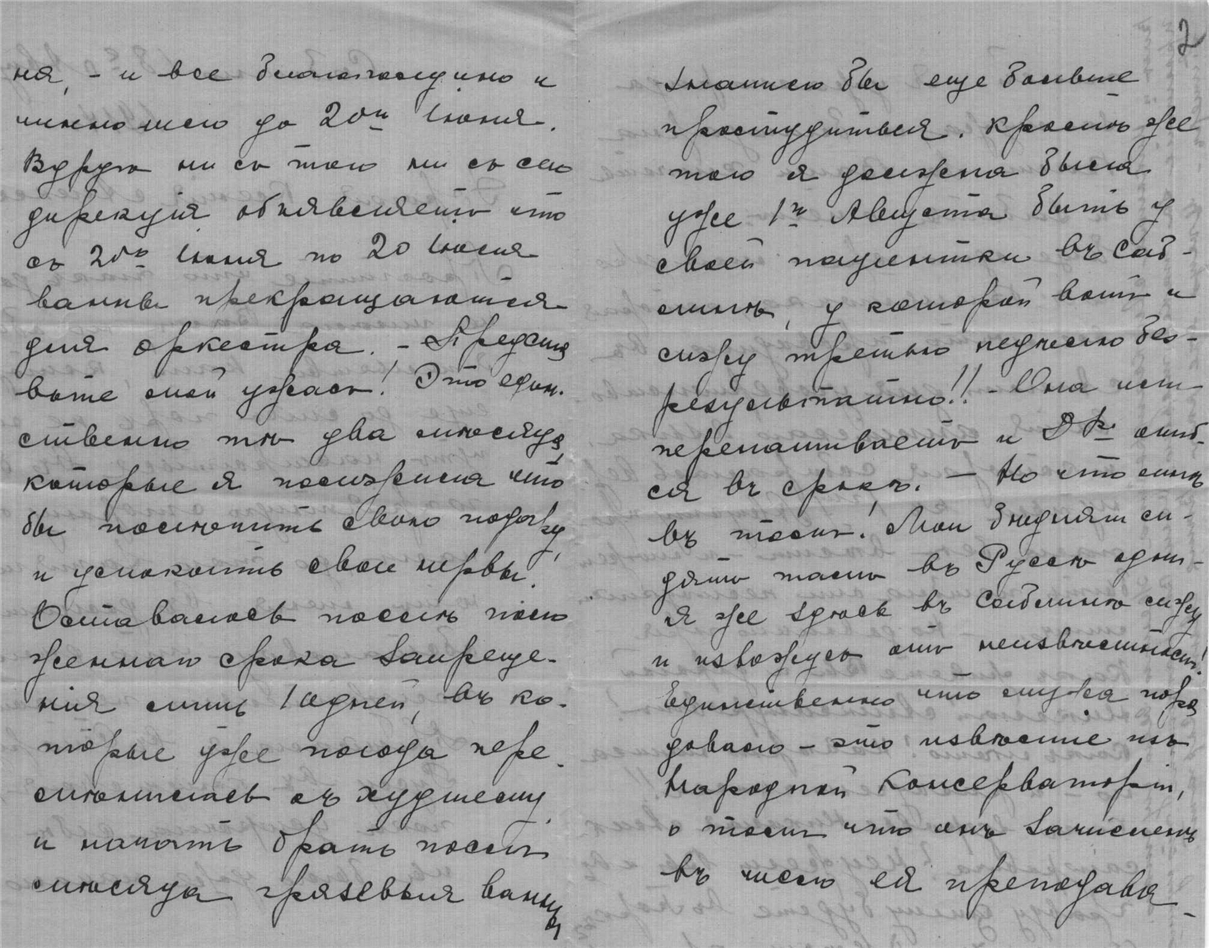 ня, - и все благополучно и
чинно шло до 20го Июня.
Вдругъ ни съ того ни съ сего
дирекція объявляетъ что
съ 20го Июня по 20 Июля
ванны прекращаются
для оркестра. - Представь
вьте мой ужасъ! Это един-
ственно тѣ два мѣсяца,
которые я положила что
бы полѣчить свою подагру,
и успокоить свои нервы.
Оставалось послѣ поло
женнаго срока запреще-
нія лишь 10 дней, въ ко-
торые уже погода пере-
мѣнилась къ худшему,
и начать брать послѣ
мѣсяца грязевыя ванны,
2
значило бы еще больше
простудиться. Кромѣ же
того я должна была
уже 1го Августа быть у
своей паціентки въ Саб-
лино, у которой вотъ и
сижу третью недѣлю без-
результатно!! - Она
перенашиваетъ и Дръ ошиб-
ся въ срокѣ. - Но что мнѣ
въ томъ! Мои бѣдняги си-
дятъ тамъ въ Руссѣ одни -
я же здѣсь въ Саблино сижу
и извожусь отъ неизвѣстности!
Единственно что мужа пора
довало - это извѣстіе изъ
Народной Консерваторіи,
о томъ что онъ зачисленъ
въ число ея преподава-